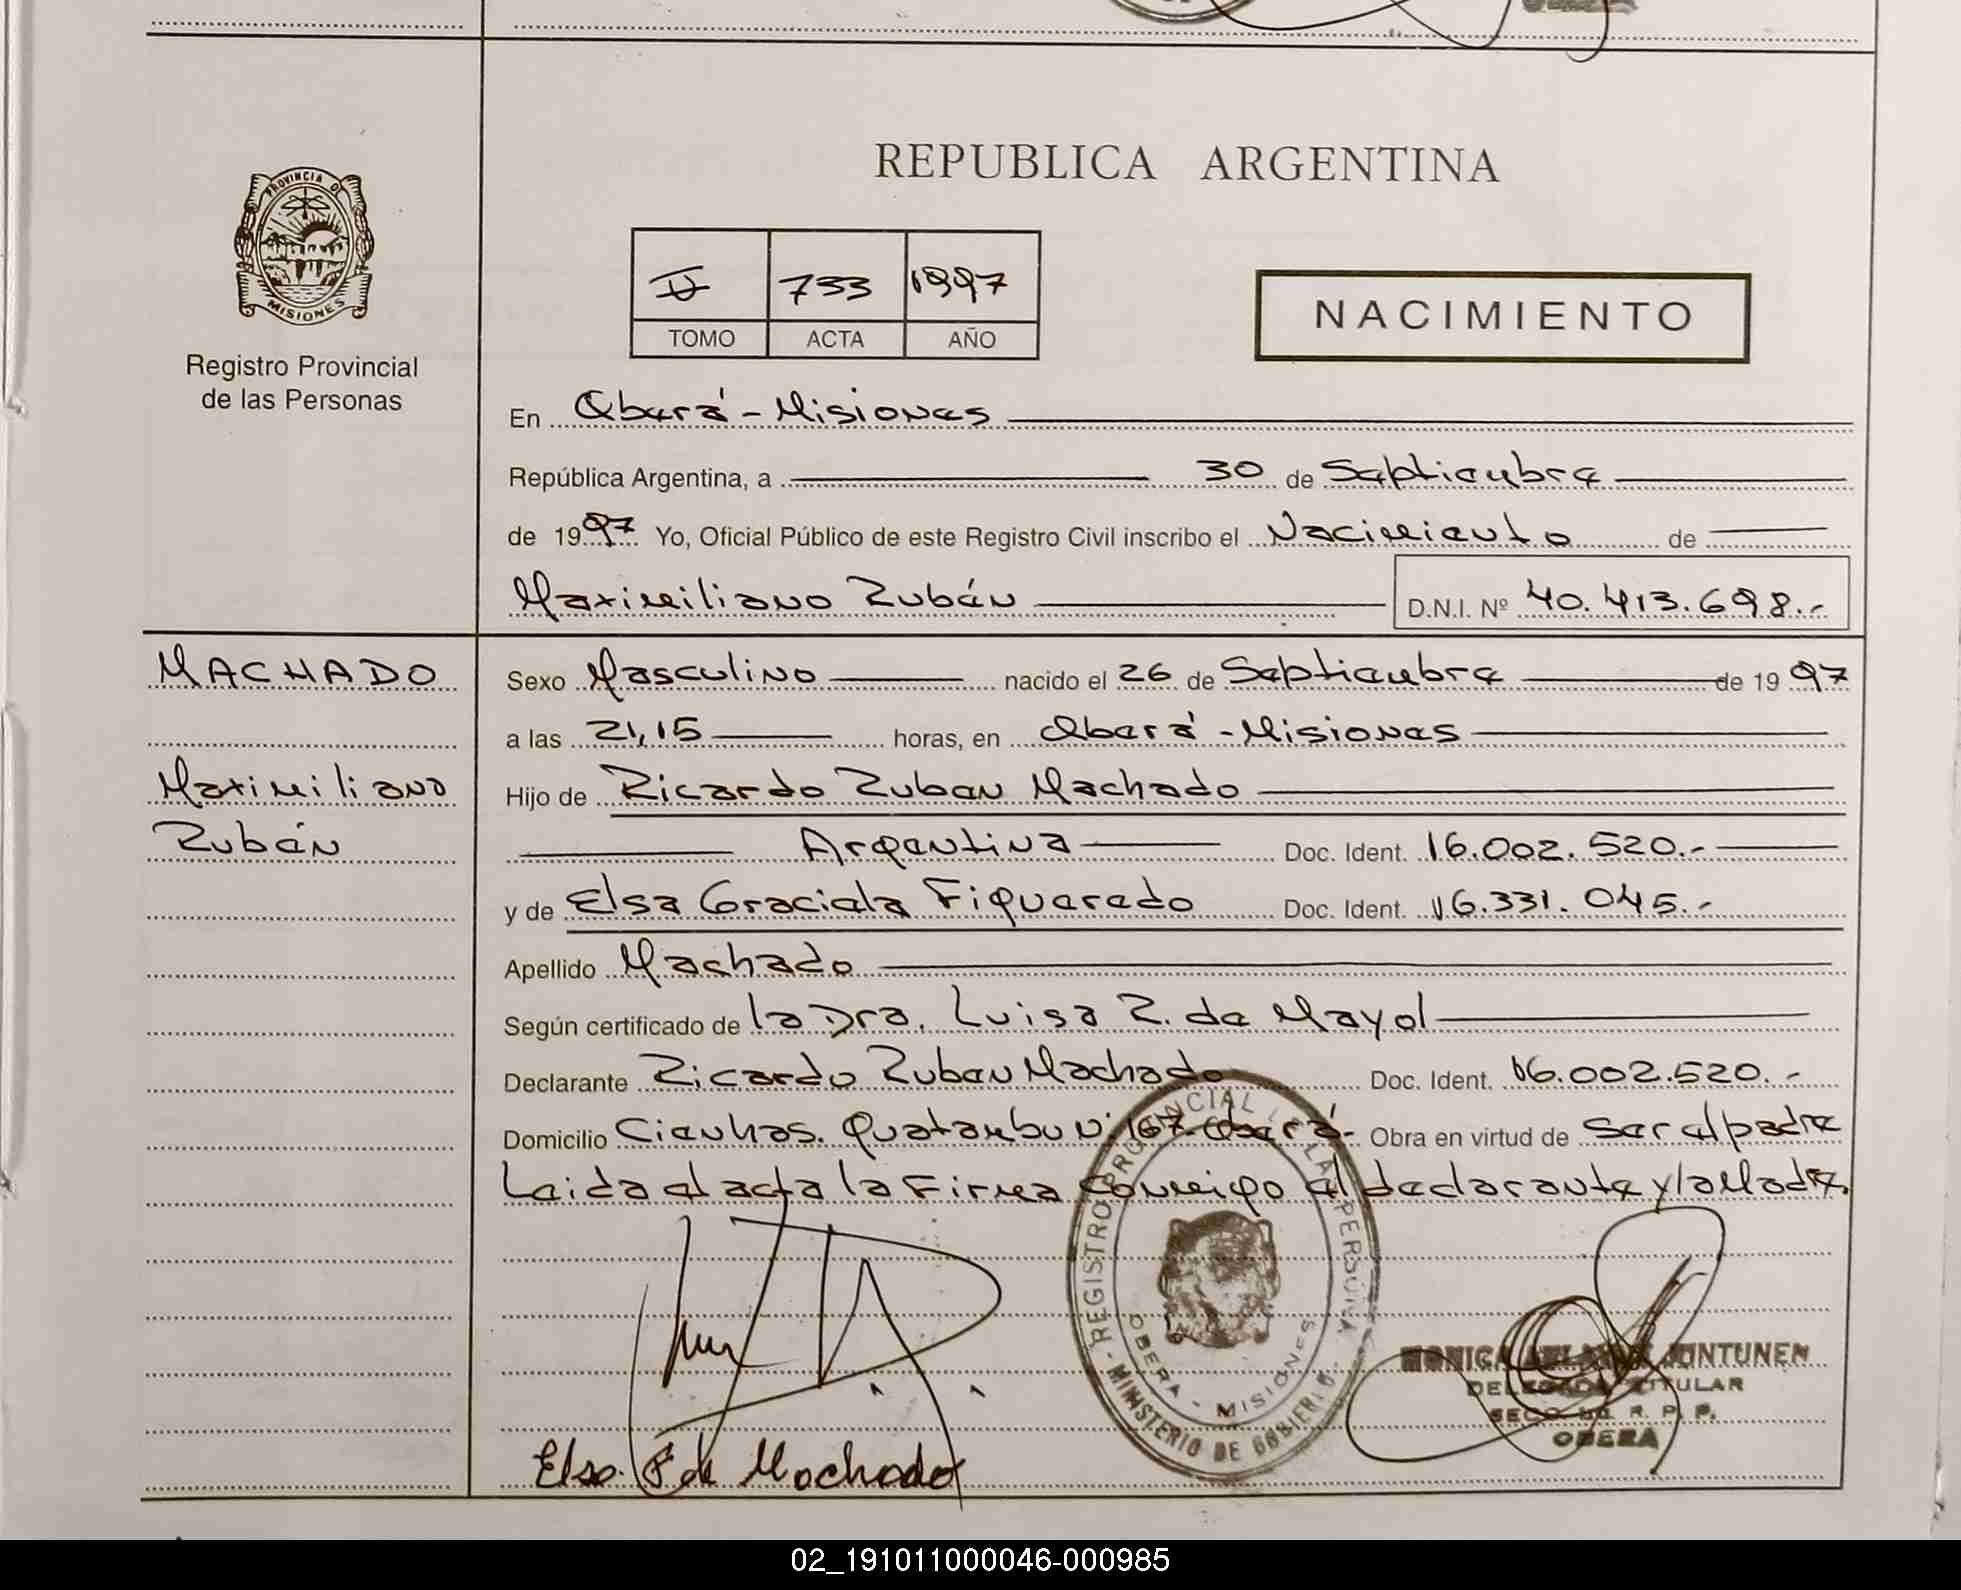 REPUBLICA ARGENTINA
PROVINCIA DE
MISIONES
Registro Provincial
de las Personas
II 733 1997
TOMO ACTA AÑO
NACIMIENTO
En Oberá - Misiones
República Argentina, a 30 de Septiembre
de 1997 Yo, Oficial Público de este Registro Civil inscribo el Nacimiento de
Maximiliano Rubén D.N.I. Nº 40.413.698.-
MACHADO
Maximiliano
Rubén
Sexo Masculino nacido el 26 de Septiembre de 1997
a las 21,15 horas, en Oberá - Misiones
Hijo de Ricardo Ruben Machado
Argentina Doc. Ident. 16.002.520.-
y de Elsa Graciela Figueredo Doc. Ident. 16.331.045.-
Apellido Machado
Según certificado de la Dra. Luisa R. de Mayol
Declarante Ricardo Ruben Machado Doc. Ident. 16.002.520.-
Domicilio Cien has. Guatambu Nº 167-Oberá- Obra en virtud de ser el padre
Leida el acta la Firma conmigo el declarante y la Madre.
REGISTRO PROVINCIAL DE LAS PERSONAS
OBERA - MISIONES
- MINISTERIO DE GOBIERNO -
MONICA JUNTUNEN
DELEGADA TITULAR
SECC. R. P. P.
OBERA
Elsa F de Machado
02_191011000046-000985